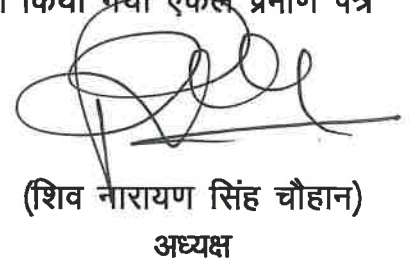 किया गया एकल प्रमाण पत्र
(शिव नारायण सिंह चौहान)
अध्यक्ष